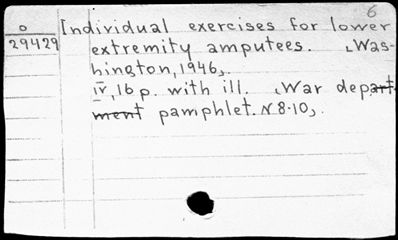 6
o
29429
Individual exercises for lower
extremity amputees. [Was-
hington, 1946].
iv, 16 p. with ill. [War depart-
ment pamphlet. N 8-10].